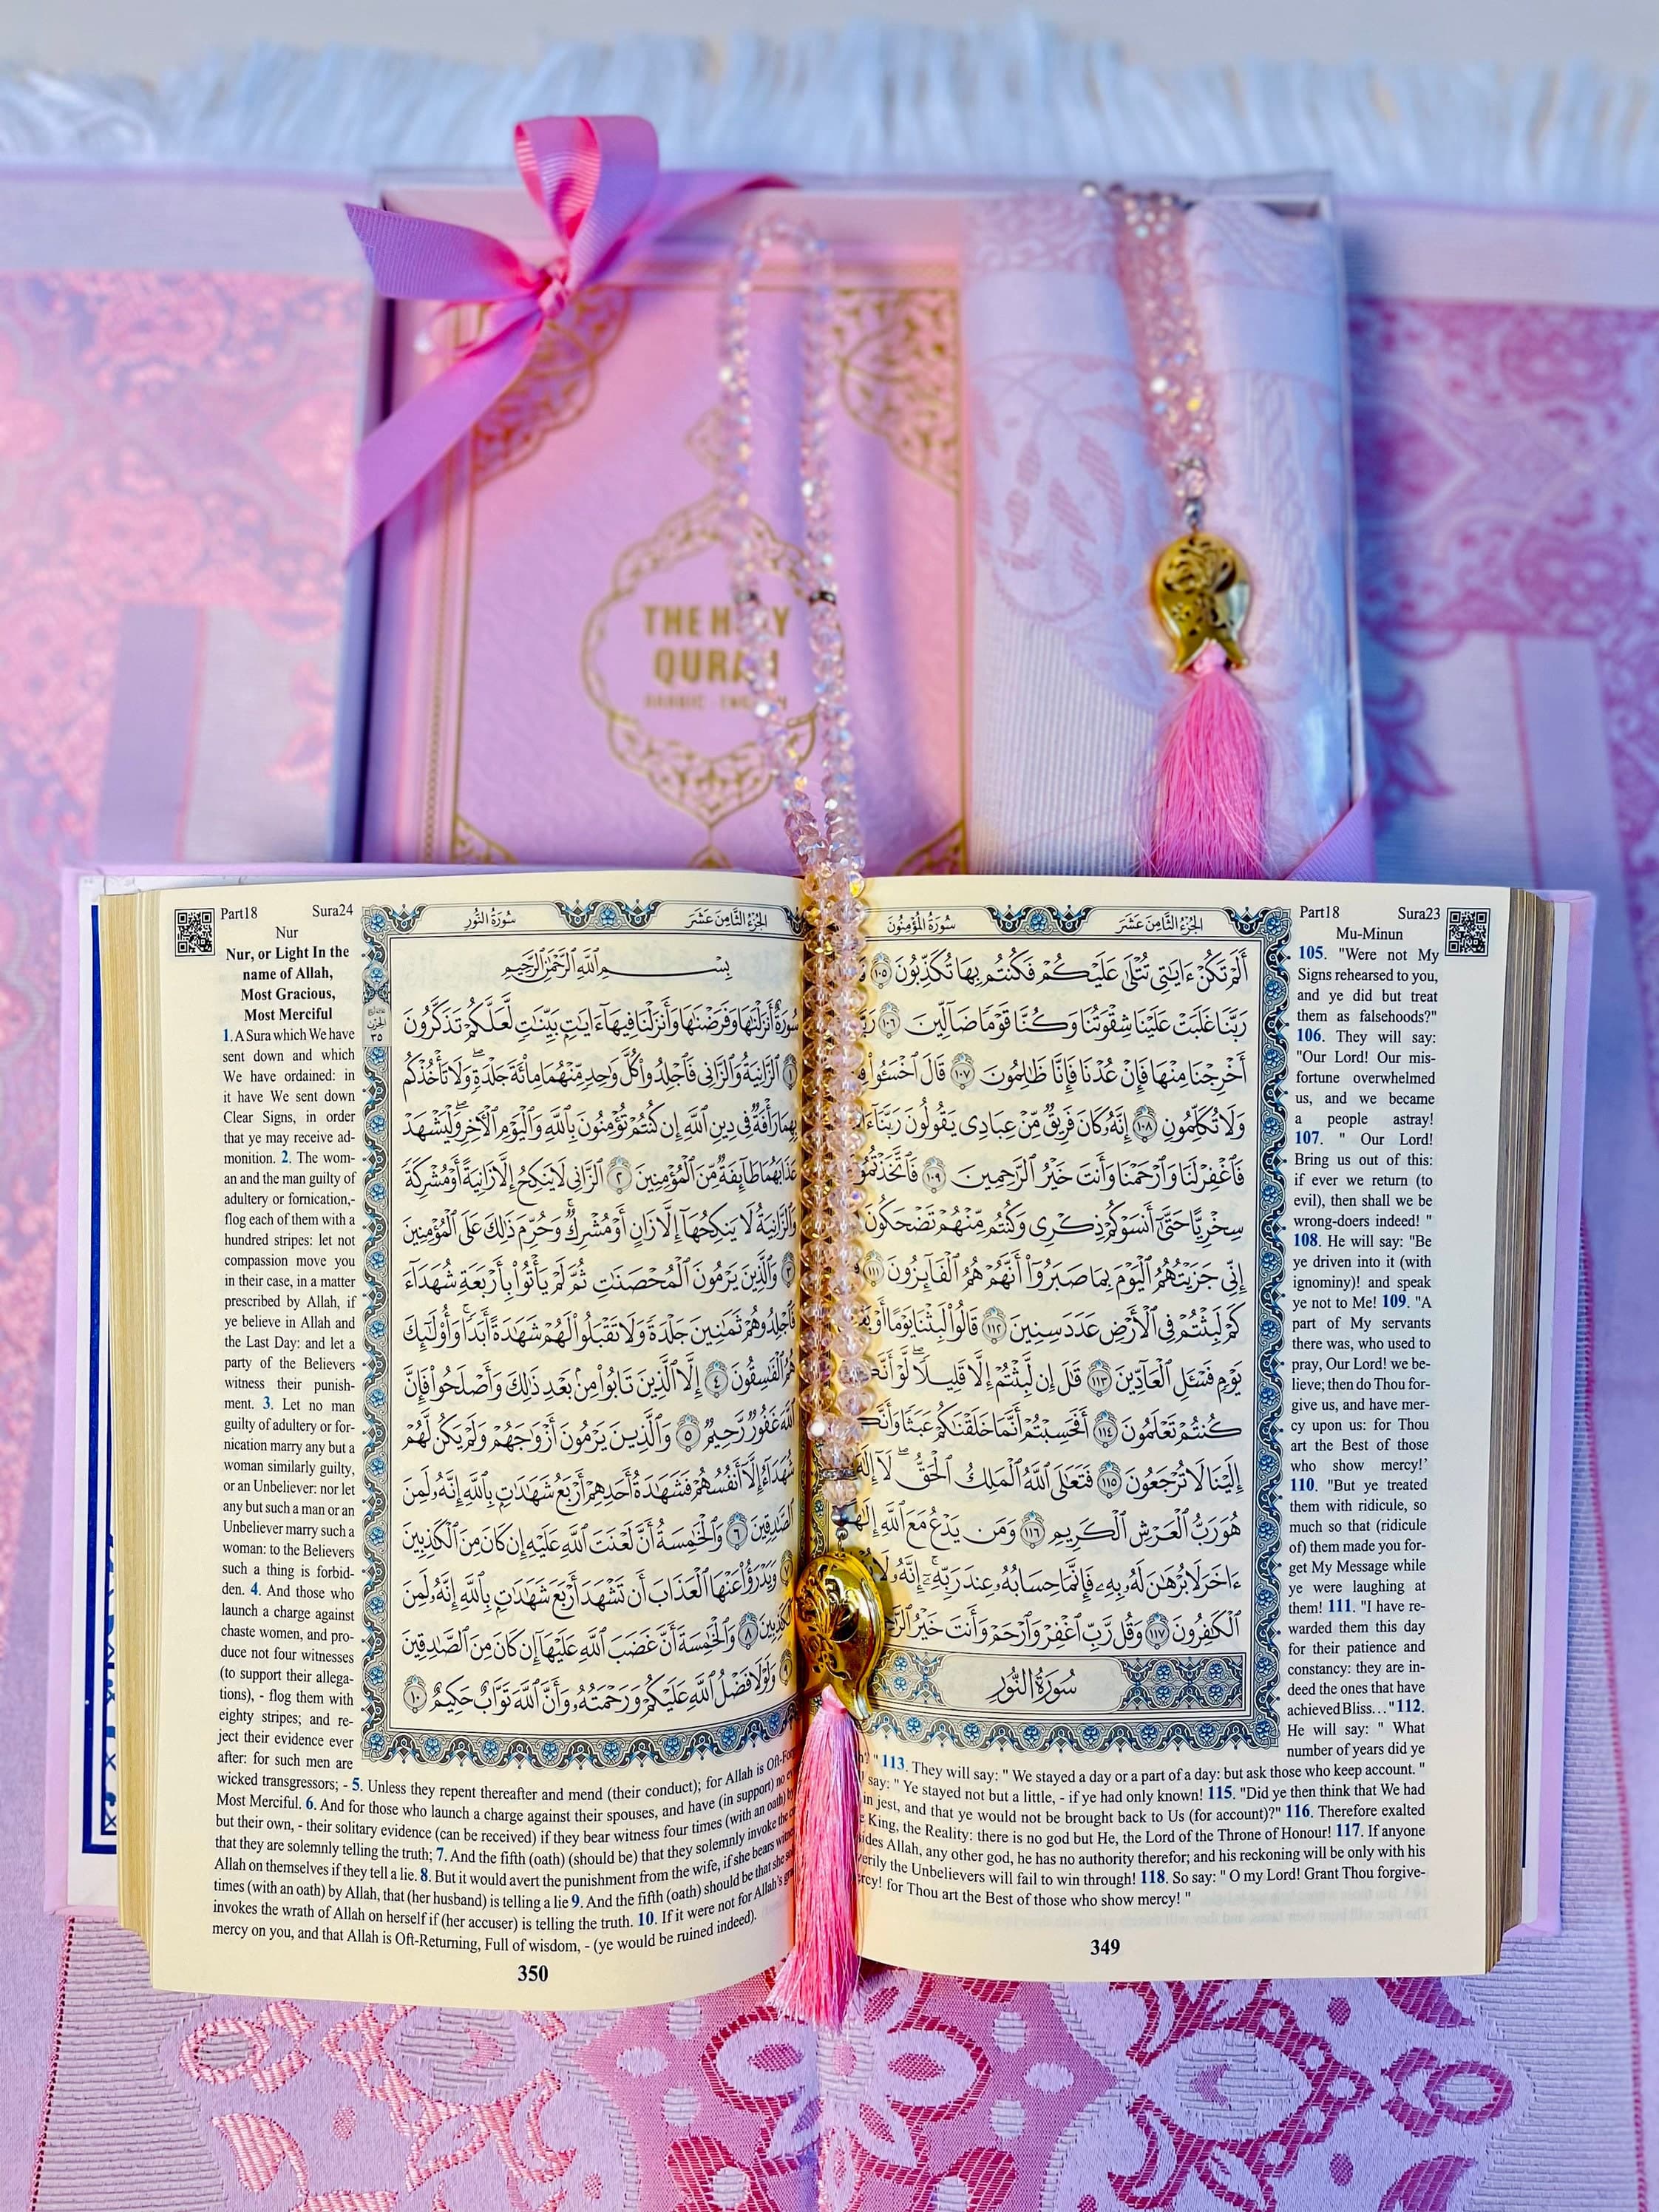 THE H
QURA
Part18 Sura23
Mu-Minun
سُورَةُ المُؤْمِنُونَ
الجُزْءُ الثَّامِنَ عَشَرَ
أَلَمْ تَكُنْ ءَايَٰتِى تُتْلَىٰ عَلَيْكُمْ فَكُنتُم بِهَا تُكَذِّبُونَ ١٠٥
رَبَّنَا غَلَبَتْ عَلَيْنَا شِقْوَتُنَا وَكُنَّا قَوْمًا ضَآلِّينَ ١٠٦
أَخْرِجْنَا مِنْهَا فَإِنْ عُدْنَا فَإِنَّا ظَٰلِمُونَ ١٠٧ قَالَ ٱخْسَـُٔوا۟
وَلَا تُكَلِّمُونِ ١٠٨ إِنَّهُۥ كَانَ فَرِيقٌ مِّنْ عِبَادِى يَقُولُونَ رَبَّنَآ
فَٱغْفِرْ لَنَا وَٱرْحَمْنَا وَأَنتَ خَيْرُ ٱلرَّٰحِمِينَ ١٠٩ فَٱتَّخَذْتُمُو
سِخْرِيًّا حَتَّىٰٓ أَنسَوْكُمْ ذِكْرِى وَكُنتُم مِّنْهُمْ تَضْحَكُونَ
إِنِّى جَزَيْتُهُمُ ٱلْيَوْمَ بِمَا صَبَرُوٓا۟ أَنَّهُمْ هُمُ ٱلْفَآئِزُونَ ١١١
كَمْ لَبِثْتُمْ فِى ٱلْأَرْضِ عَدَدَ سِنِينَ ١١٢ قَالُوا۟ لَبِثْنَا يَوْمًا أَوْ
يَوْمٍ فَسْـَٔلِ ٱلْعَآدِّينَ ١١٣ قَٰلَ إِن لَّبِثْتُمْ إِلَّا قَلِيلًا لَّوْ
كُنتُمْ تَعْلَمُونَ ١١٤ أَفَحَسِبْتُمْ أَنَّمَا خَلَقْنَٰكُمْ عَبَثًا
إِلَيْنَا لَا تُرْجَعُونَ ١١٥ فَتَعَٰلَى ٱللَّهُ ٱلْمَلِكُ ٱلْحَقُّ لَآ إِلَٰهَ
هُوَ رَبُّ ٱلْعَرْشِ ٱلْكَرِيمِ ١١٦ وَمَن يَدْعُ مَعَ ٱللَّهِ إِلَٰهًا
ءَاخَرَ لَا بُرْهَٰنَ لَهُۥ بِهِۦ فَإِنَّمَا حِسَابُهُۥ عِندَ رَبِّهِۦٓ إِنَّهُۥ لَا
ٱلْكَٰفِرُونَ ١١٧ وَقُل رَّبِّ ٱغْفِرْ وَٱرْحَمْ وَأَنتَ خَيْرُ
سُورَةُ النُّورِ
105. "Were not My
Signs rehearsed to you,
and ye did but treat
them as falsehoods?"
106. They will say:
"Our Lord! Our mis-
fortune overwhelmed
us, and we became
a people astray!
107. " Our Lord!
Bring us out of this:
if ever we return (to
evil), then shall we be
wrong-doers indeed! "
108. He will say: "Be
ye driven into it (with
ignominy)! and speak
ye not to Me! 109. "A
part of My servants
there was, who used to
pray, Our Lord! we be-
lieve; then do Thou for-
give us, and have mer-
cy upon us: for Thou
art the Best of those
who show mercy!'
110. "But ye treated
them with ridicule, so
much so that (ridicule
of) them made you for-
get My Message while
ye were laughing at
them! 111. "I have re-
warded them this day
for their patience and
constancy: they are in-
deed the ones that have
achieved Bliss..." 112.
He will say: " What
number of years did ye
" 113. They will say: " We stayed a day or a part of a day: but ask those who keep account. "
say: " Ye stayed not but a little, - if ye had only known! 115. "Did ye then think that We had
in jest, and that ye would not be brought back to Us (for account)?" 116. Therefore exalted
King, the Reality: there is no god but He, the Lord of the Throne of Honour! 117. If anyone
Allah, any other god, he has no authority therefor; and his reckoning will be only with his
the Unbelievers will fail to win through! 118. So say: " O my Lord! Grant Thou forgive-
for Thou art the Best of those who show mercy! "
349
Part18 Sura24
Nur
Nur, or Light In the
name of Allah,
Most Gracious,
Most Merciful
سُورَةُ النُّورِ
الجُزْءُ الثَّامِنَ عَشَرَ
بِسْمِ ٱللَّهِ ٱلرَّحْمَٰنِ ٱلرَّحِيمِ
سُورَةٌ أَنزَلْنَٰهَا وَفَرَضْنَٰهَا وَأَنزَلْنَا فِيهَآ ءَايَٰتٍۭ بَيِّنَٰتٍ لَّعَلَّكُمْ تَذَكَّرُونَ
١ ٱلزَّانِيَةُ وَٱلزَّانِى فَٱجْلِدُوا۟ كُلَّ وَٰحِدٍ مِّنْهُمَا مِا۟ئَةَ جَلْدَةٍ وَلَا تَأْخُذْكُم
بِهِمَا رَأْفَةٌ فِى دِينِ ٱللَّهِ إِن كُنتُمْ تُؤْمِنُونَ بِٱللَّهِ وَٱلْيَوْمِ ٱلْءَاخِرِ وَلْيَشْهَدْ
عَذَابَهُمَا طَآئِفَةٌ مِّنَ ٱلْمُؤْمِنِينَ ٢ ٱلزَّانِى لَا يَنكِحُ إِلَّا زَانِيَةً أَوْ مُشْرِكَةً
وَٱلزَّانِيَةُ لَا يَنكِحُهَآ إِلَّا زَانٍ أَوْ مُشْرِكٌ وَحُرِّمَ ذَٰلِكَ عَلَى ٱلْمُؤْمِنِينَ
٣ وَٱلَّذِينَ يَرْمُونَ ٱلْمُحْصَنَٰتِ ثُمَّ لَمْ يَأْتُوا۟ بِأَرْبَعَةِ شُهَدَآءَ
فَٱجْلِدُوهُمْ ثَمَٰنِينَ جَلْدَةً وَلَا تَقْبَلُوا۟ لَهُمْ شَهَٰدَةً أَبَدًا وَأُو۟لَٰٓئِكَ
هُمُ ٱلْفَٰسِقُونَ ٤ إِلَّا ٱلَّذِينَ تَابُوا۟ مِنۢ بَعْدِ ذَٰلِكَ وَأَصْلَحُوا۟ فَإِنَّ
ٱللَّهَ غَفُورٌ رَّحِيمٌ ٥ وَٱلَّذِينَ يَرْمُونَ أَزْوَٰجَهُمْ وَلَمْ يَكُن لَّهُمْ
شُهَدَآءُ إِلَّآ أَنفُسُهُمْ فَشَهَٰدَةُ أَحَدِهِمْ أَرْبَعُ شَهَٰدَٰتٍۭ بِٱللَّهِ إِنَّهُۥ لَمِنَ
ٱلصَّٰدِقِينَ ٦ وَٱلْخَٰمِسَةُ أَنَّ لَعْنَتَ ٱللَّهِ عَلَيْهِ إِن كَانَ مِنَ ٱلْكَٰذِبِينَ
وَيَدْرَؤُا۟ عَنْهَا ٱلْعَذَابَ أَن تَشْهَدَ أَرْبَعَ شَهَٰدَٰتٍۭ بِٱللَّهِ إِنَّهُۥ لَمِنَ
ٱلْكَٰذِبِينَ ٨ وَٱلْخَٰمِسَةَ أَنَّ غَضَبَ ٱللَّهِ عَلَيْهَآ إِن كَانَ مِنَ ٱلصَّٰدِقِينَ
٩ وَلَوْلَا فَضْلُ ٱللَّهِ عَلَيْكُمْ وَرَحْمَتُهُۥ وَأَنَّ ٱللَّهَ تَوَّابٌ حَكِيمٌ ١٠
1. A Sura which We have
sent down and which
We have ordained: in
it have We sent down
Clear Signs, in order
that ye may receive ad-
monition. 2. The wom-
an and the man guilty of
adultery or fornication,-
flog each of them with a
hundred stripes: let not
compassion move you
in their case, in a matter
prescribed by Allah, if
ye believe in Allah and
the Last Day: and let a
party of the Believers
witness their punish-
ment. 3. Let no man
guilty of adultery or for-
nication marry any but a
woman similarly guilty,
or an Unbeliever: nor let
any but such a man or an
Unbeliever marry such a
woman: to the Believers
such a thing is forbid-
den. 4. And those who
launch a charge against
chaste women, and pro-
duce not four witnesses
(to support their allega-
tions), - flog them with
eighty stripes; and re-
ject their evidence ever
after: for such men are
wicked transgressors; - 5. Unless they repent thereafter and mend (their conduct); for Allah is
Most Merciful. 6. And for those who launch a charge against their spouses, and have (in support) no
but their own, - their solitary evidence (can be received) if they bear witness four times (with an oath)
that they are solemnly telling the truth; 7. And the fifth (oath) (should be) that they solemnly invoke the
Allah on themselves if they tell a lie. 8. But it would avert the punishment from the wife, if she bears
times (with an oath) by Allah, that (her husband) is telling a lie 9. And the fifth (oath) should be that she
invokes the wrath of Allah on herself if (her accuser) is telling the truth. 10. If it were not for Allah's
mercy on you, and that Allah is Oft-Returning, Full of wisdom, - (ye would be ruined indeed).
350